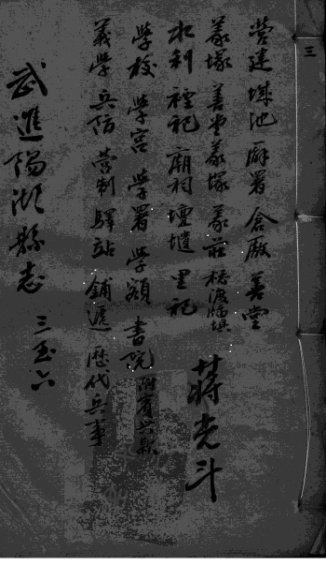 三
營建 城池 廨署 倉廒 善堂
義塚 善堂義塚 義莊 橋渡
水利 禮祀 廟祠壇壝 里祀
學校 學宮 學署 學額 書院 附賓興款
義學 兵防 營制 驛站 鋪遞 歷代兵事
蔣光斗
武進陽湖縣志 三至六